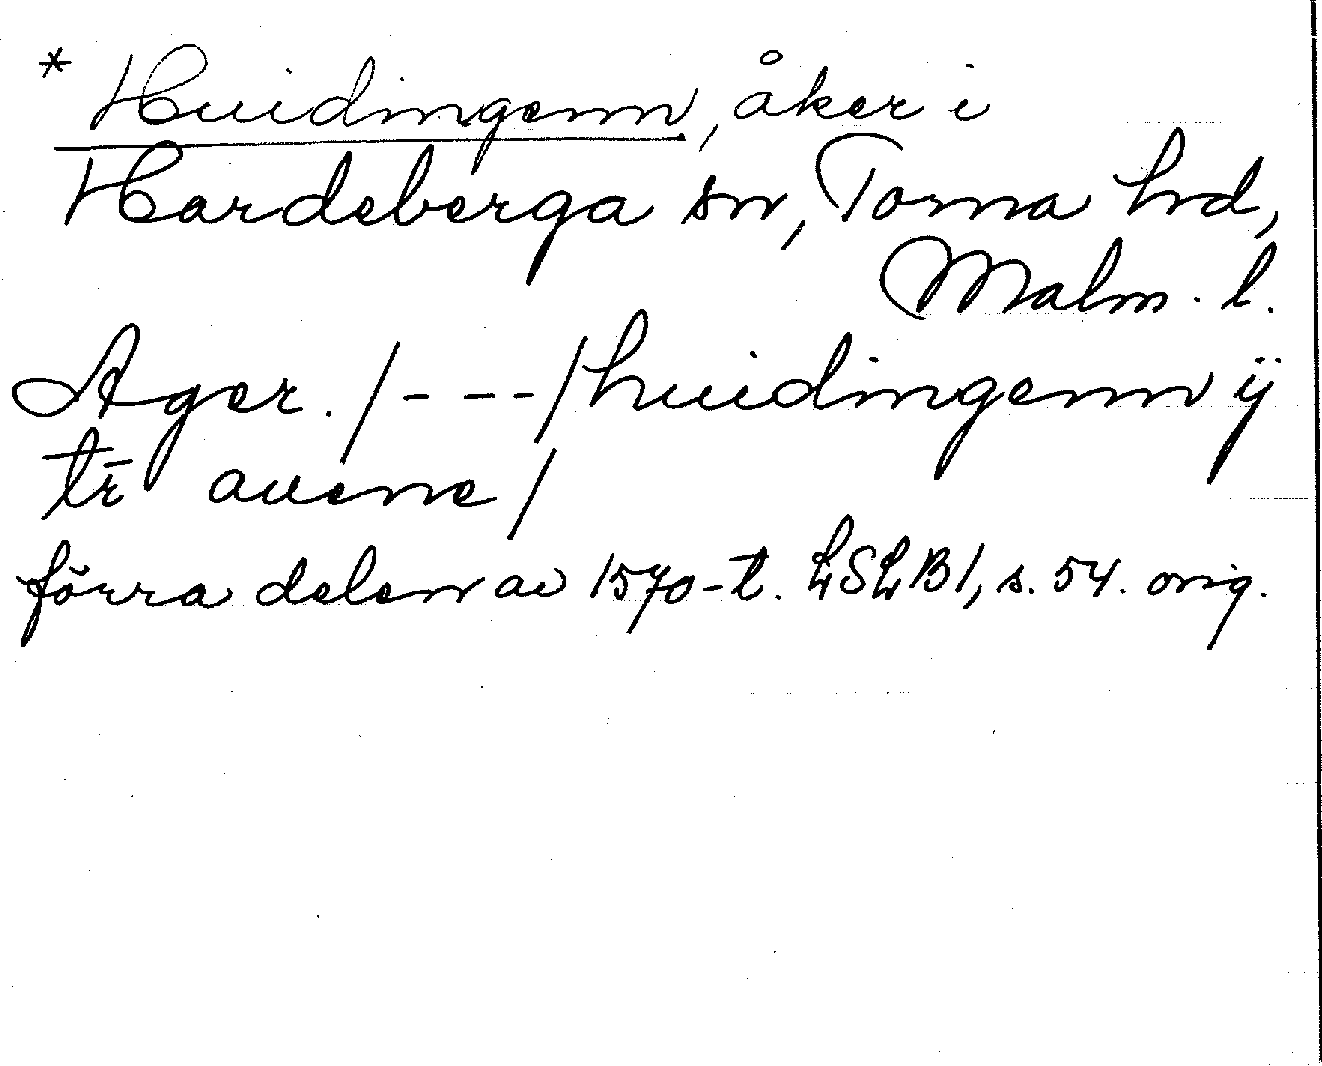 * Huidingenn, åker i
Hardeberga sn, Torna hd,
Malm. l.
Ager. /---/ huidingenn ij
tr̄ auene /
förra delen av 1570-t. LSLB1, s. 54. orig.